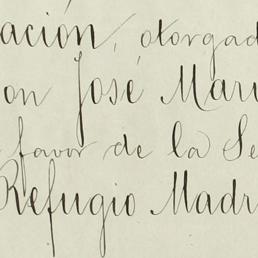 ación, otorgad
on José Mari
favor de la Se
Refugio Madr